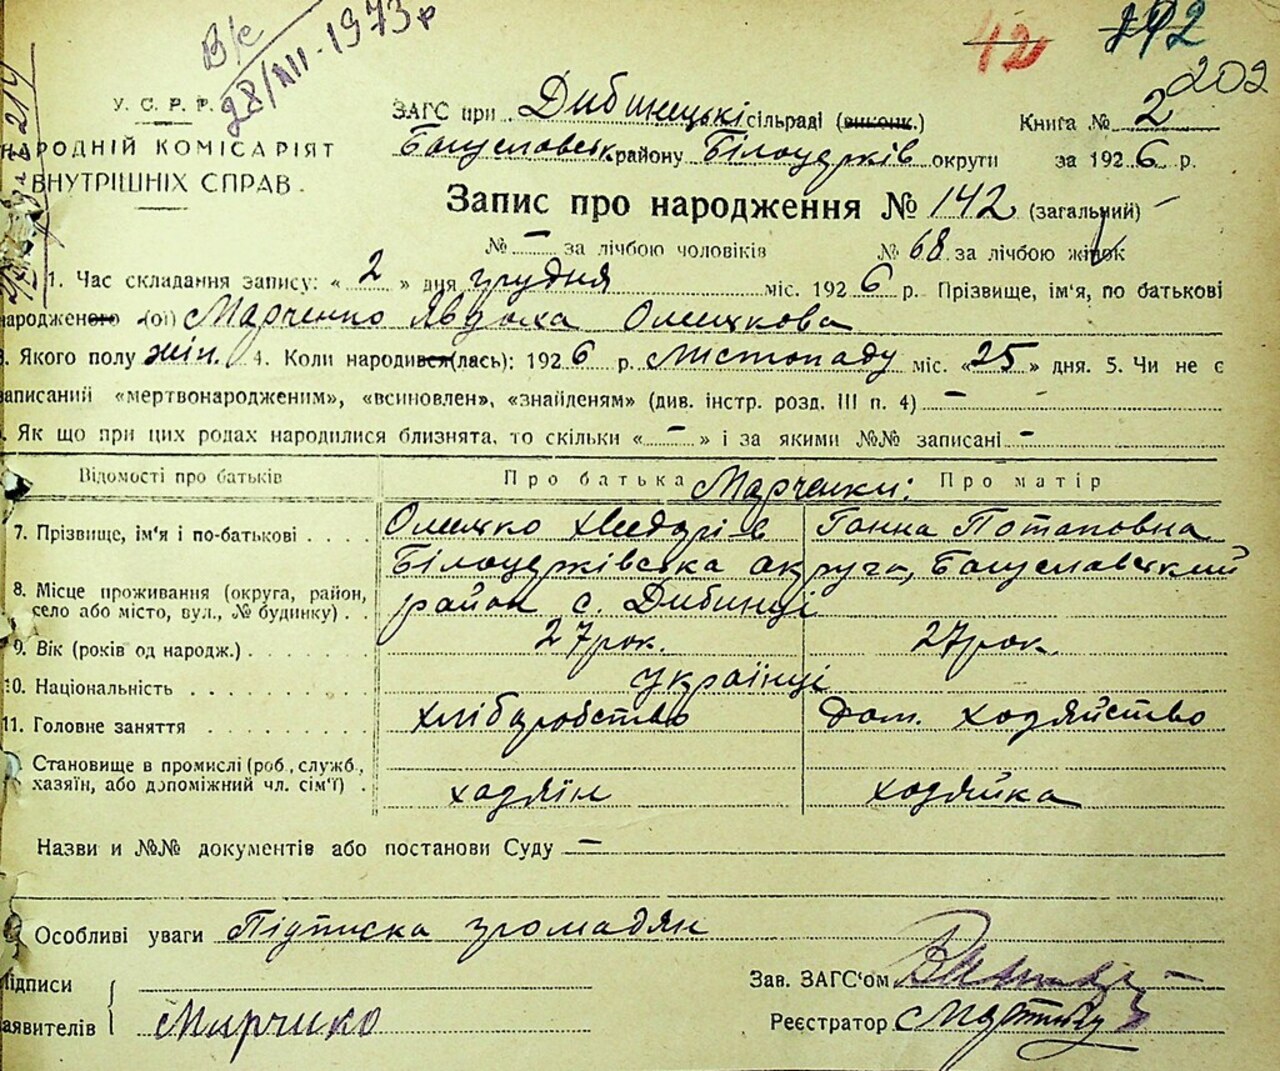 В/с
28/XII-1973р
42 202
У. С. Р. Р.
НАРОДНІЙ КОМІСАРІЯТ
ВНУТРІШНІХ СПРАВ.
ЗАГС при Дибинецькі сільраді (виконк.) Книга № 2
Богуславськ району Білоцерків округи за 1926 р.
Запис про народження № 142 (загальний)
№ – за лічбою чоловіків № 68 за лічбою жінок
1. Час складання запису: « 2 » дня грудня міс. 1926 р. Прізвище, ім'я, по батькові
народженого (ої) Марченко Явдоха Олешкова
3. Якого полу жін. 4. Коли народився(лась): 1926 р. Листопаду міс. «25» дня. 5. Чи не є
записаний «мертвонародженим», «всиновлен», «знайденям» (див. інстр. розд. III п. 4) –
Як що при цих родах народилися близнята, то скільки « – » і за якими №№ записані –
Відомості про батьків Про батька Марченки: Про матір
7. Прізвище, ім'я і по-батькові Олешко Ганна Потаповна
Білоцерківська округа, Богуславський
8. Місце проживання (округа, район, село або місто, вул., № будинку) район с. Дибинці
9. Вік (років од народж.) 27 рок. 27 рок.
10. Національність Українці
11. Головне заняття хліборобство Дом. хозяйство
Становище в промислі (роб., служб.,
хазяїн, або допоміжний чл. сім'ї) хазяїн хозяйка
Назви и №№ документів або постанови Суду –
Особливі уваги Підписка громадян
Підписи Зав. ЗАГС'ом
заявителів Марченко Реєстратор